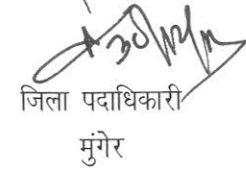 जिला पदाधिकारी
मुंगेर